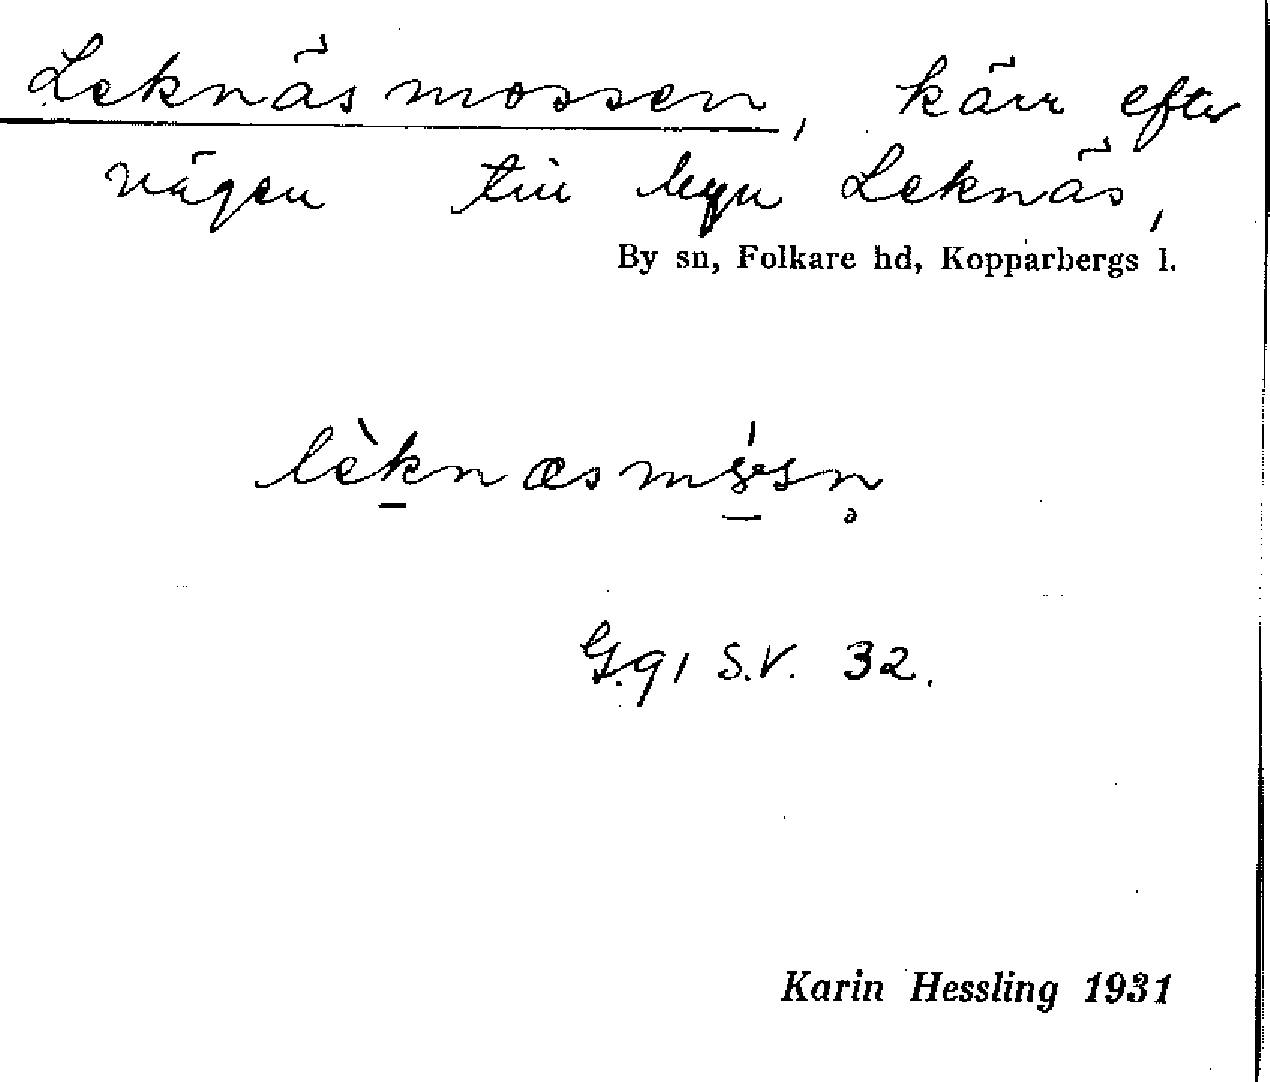 Leknäsmossen, kärr efter
vägen till byn Leknäs,
By sn, Folkare hd, Kopparbergs l.
G.91 S.V. 32.
Karin Hessling 1931